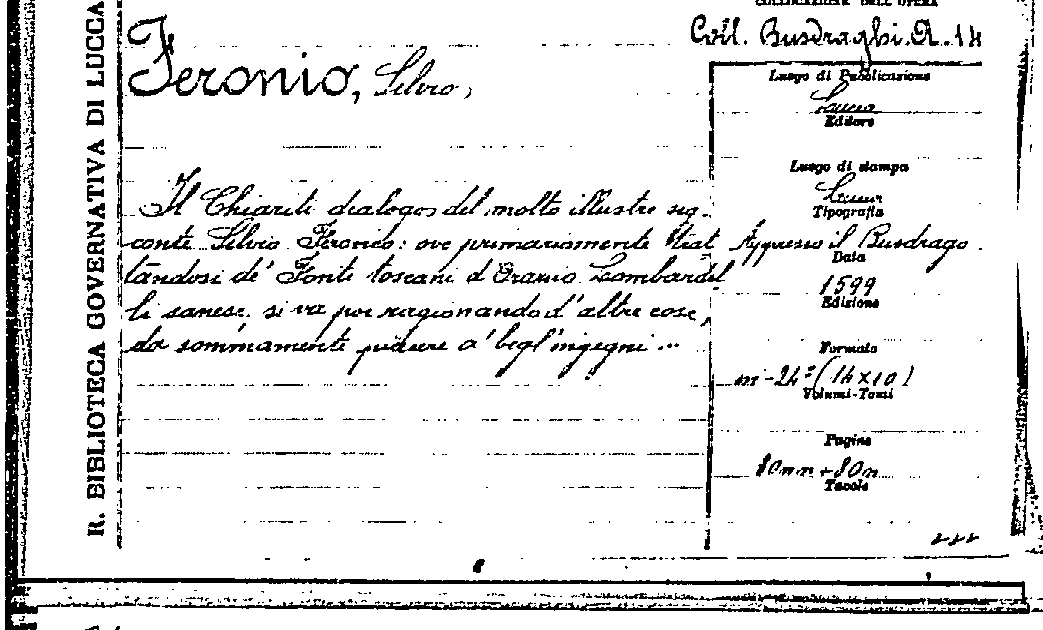 R. BIBLIOTECA GOVERNATIVA DI LUCCA
COLLOCAZIONE DELL'OPERA
Coll. Busdraghi. A. 14
Feronio, Silvio,
Il Chiariti dialogo del molto illustre sig.
conte Silvio Feronio: ove primariamente trat
tandosi de' Fonti toscani d'Orazio Lombardel
li sanese, si va poi ragionando d'altre cose,
da sommamente piacere a' begl'ingegni ...
Luogo di Pubblicazione
Lucca
Editore
Luogo di stampa
Lucca
Tipografia
Appresso il Busdrago.
Data
1599
Edizione
Formato
in-24° (14x10)
Volumi-Tomi
Pagine
Tavole